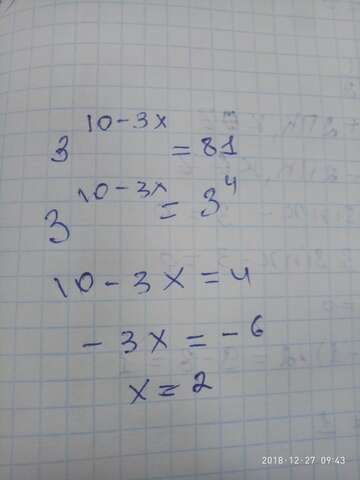 3^(10-3x) = 81
3^(10-3x) = 3^4
10 - 3x = 4
- 3x = - 6
x = 2
2018-12-27 09:43